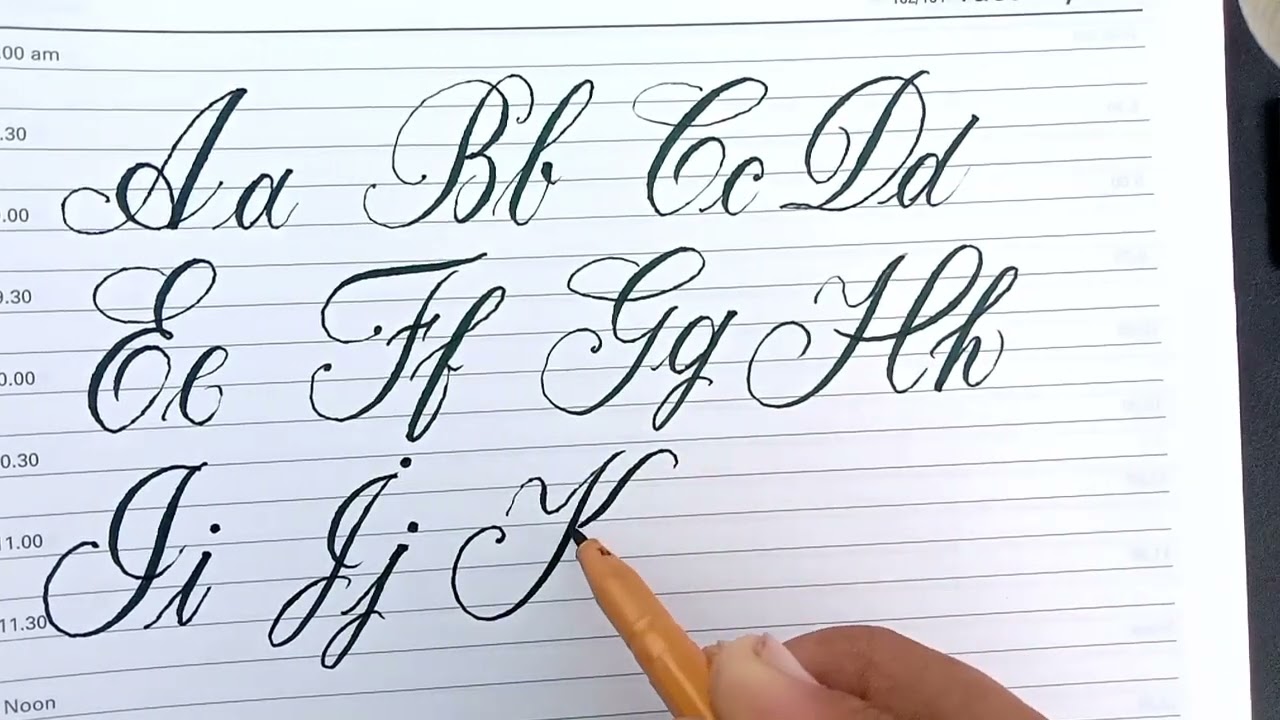 .00 am
Aa Bb Cc Dd
.30
.00
Ee Ff Gg Hh
9.30
0.00
0.30
Ii Jj K
11.00
11.30
Noon